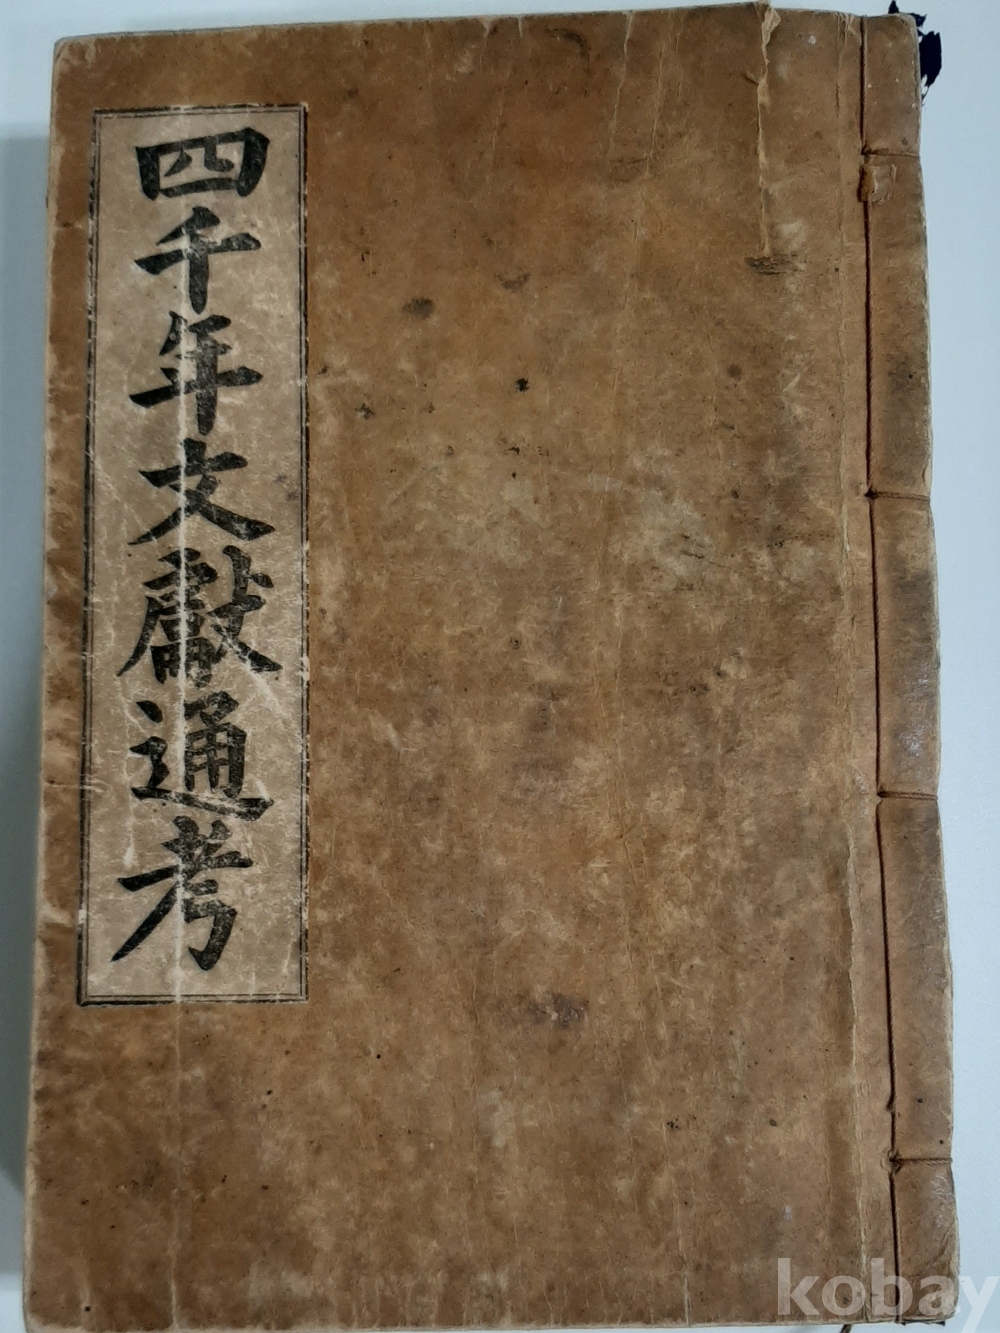 四千年文獻通考
kobay